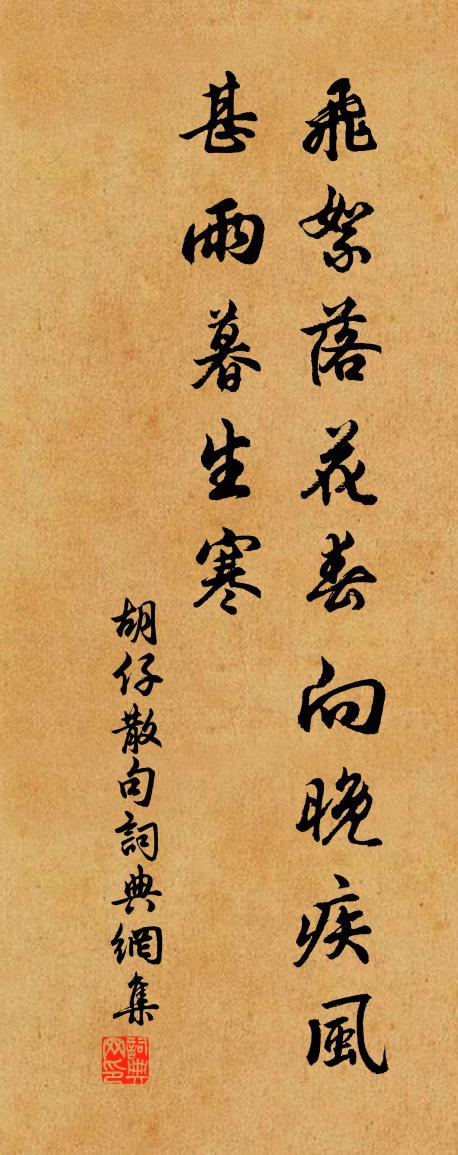 飛絮落花春向晚疾風
甚雨暮生寒
胡仔散句詞典網集
詞典網印